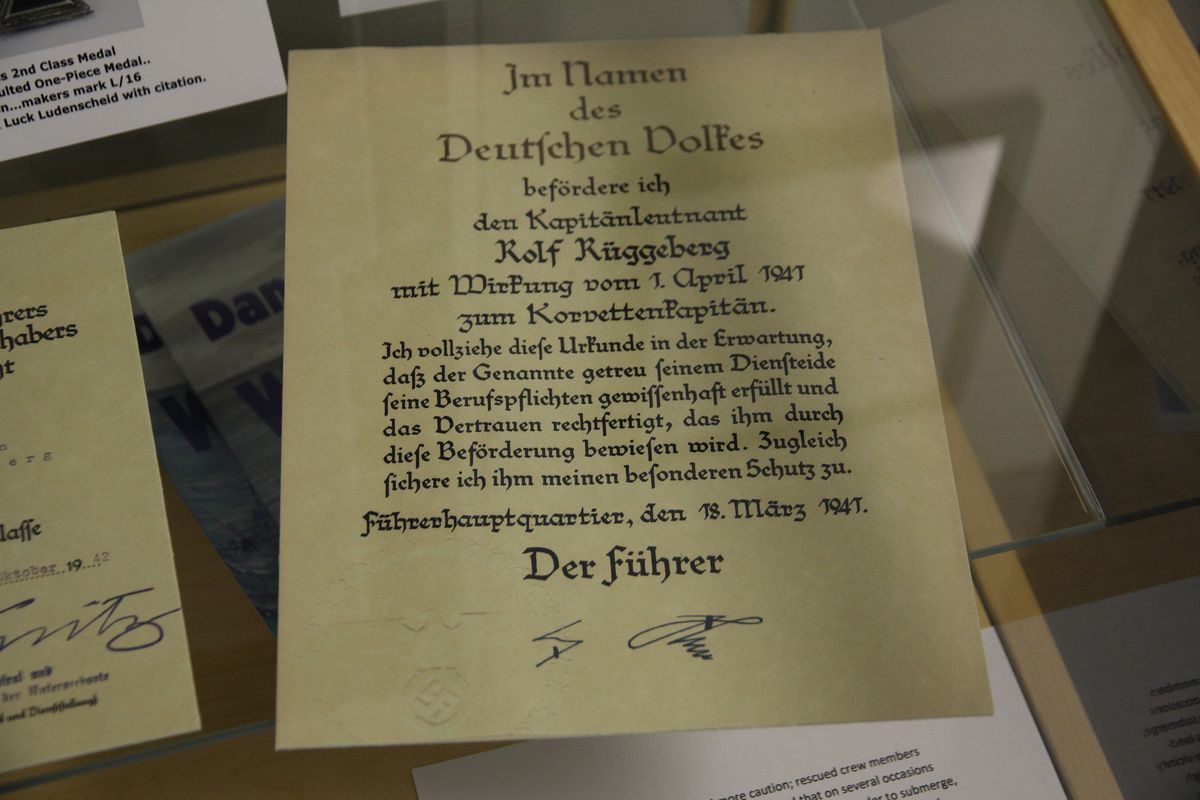 2nd Class Medal
One-Piece Medal..
makers mark L/16
Luck Ludenscheid with citation.
Im Namen
des
Deutſchen Volkes
befördere ich
den Kapitänleutnant
Rolf Rüggeberg
mit Wirkung vom 1. April 1941
zum Korvettenkapitän.
Ich vollziehe dieſe Urkunde in der Erwartung,
daß der Genannte getreu ſeinem Dienſteide
ſeine Berufspflichten gewiſſenhaft erfüllt und
das Vertrauen rechtfertigt, das ihm durch
dieſe Beförderung bewieſen wird. Zugleich
ſichere ich ihm meinen beſonderen Schutz zu.
Führerhauptquartier, den 18. März 1941.
Der Führer
Dan
19 42
und
der Unterseeboote
und Dienſtſtellung)
more caution; rescued crew members
that on several occasions
to submerge,